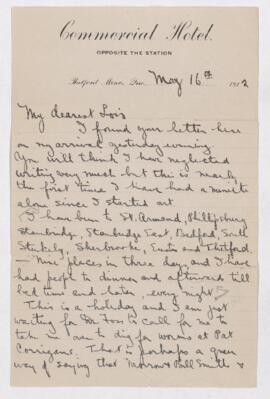 Commercial Hotel.
OPPOSITE THE STATION
Thetford Mines, Que. May 16th 1912
My dearest Lois
I found your letter here
on my arrival yesterday evening.
You will think I have neglected
writing very much but this is nearly
the first time I have had a minute
alone since I started out
I have been to St. Armand, Phillipsburg
Stanbridge, Stanbridge East, Bedford, South
Stukely, Sherbrooke, Eustis and Thetford
— Nine places in three days and I have
had people to dinner and afterward till
bed time and later, every night
This is a holiday and I am just
waiting for Mr Foss to call for me to
take me over to dig for worms at Pat
Corrigans. That is perhaps a queer
way of saying that Morrow & Bill Smith &